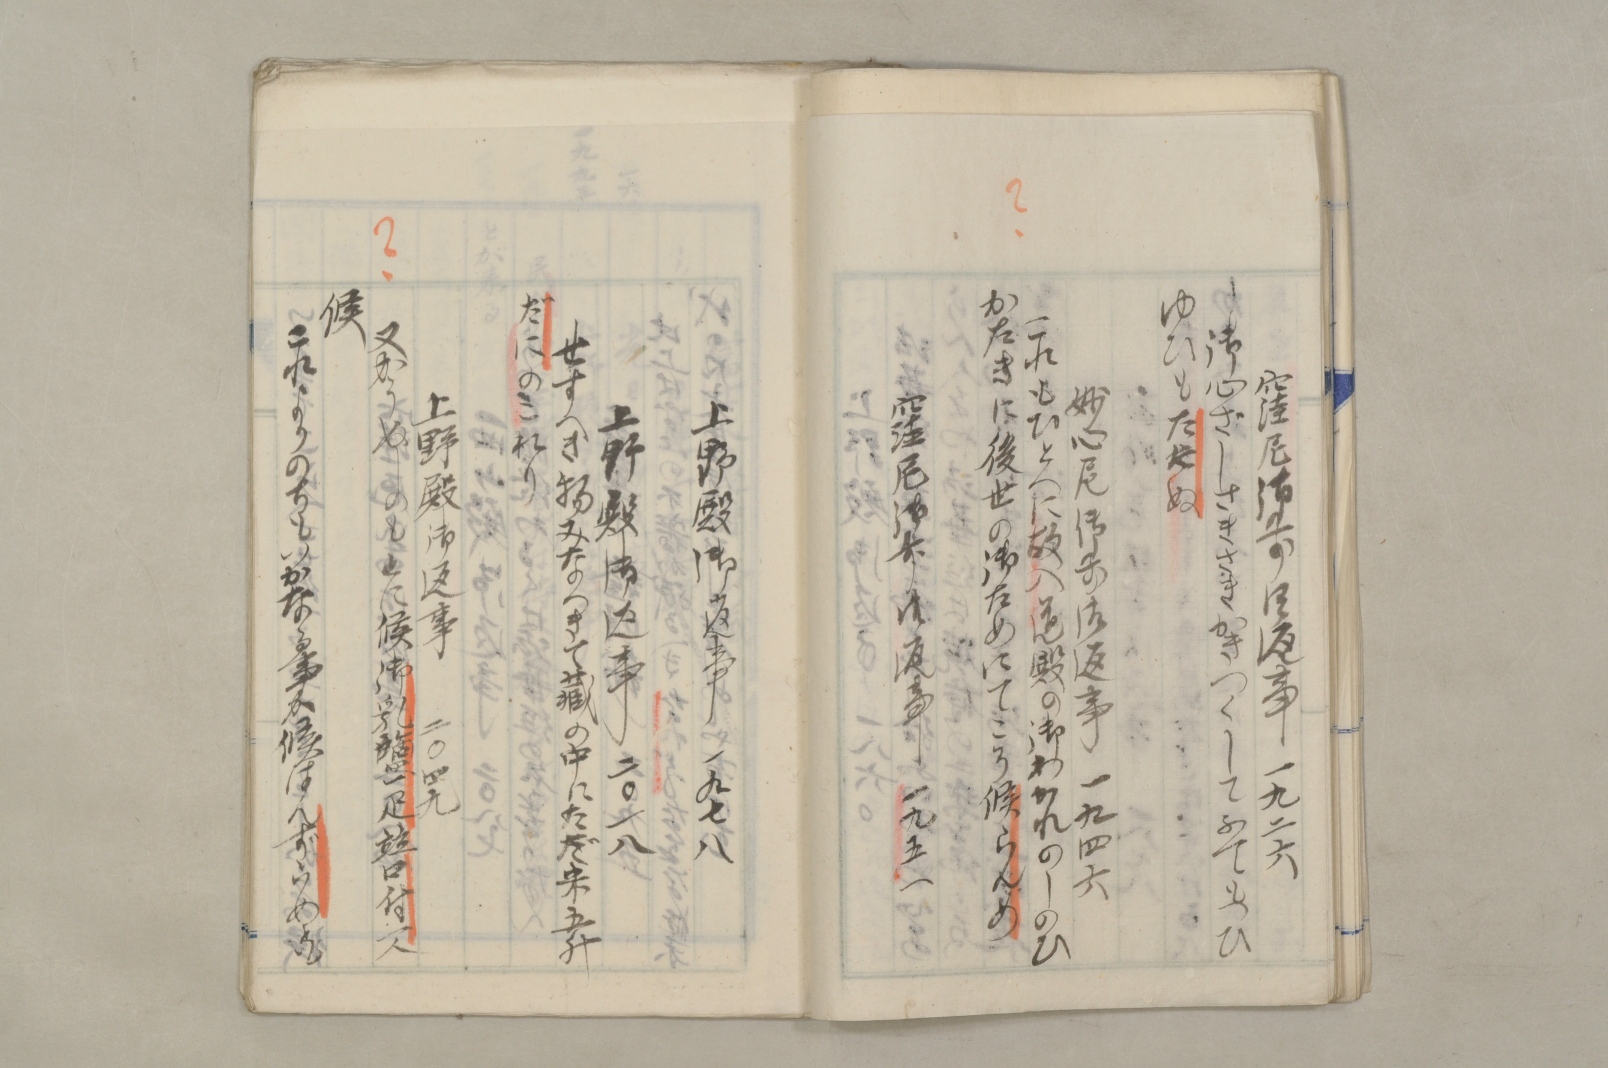 窪尼御前御返事 一九二六
一御心ざしさきざきかきつくしてふでもつひ
ゆひもたたぬ
妙心尼御前御返事 一九四六
これもひとへに故入道殿の御わかれのしのび
がたきに後世の御ためにてこそ候らんめ
窪尼御前御返事 一九五一
上野殿御返事 一九七八
上野殿御返事 二〇一八
せすへき物みなつきて藏の中にただ米五升
だにのこれり
上野殿御返事 二〇四九
又かうぬしのもとに候御乳鹽一疋並口付一人
候
これよりのちもいかなる事か候はんずらめ